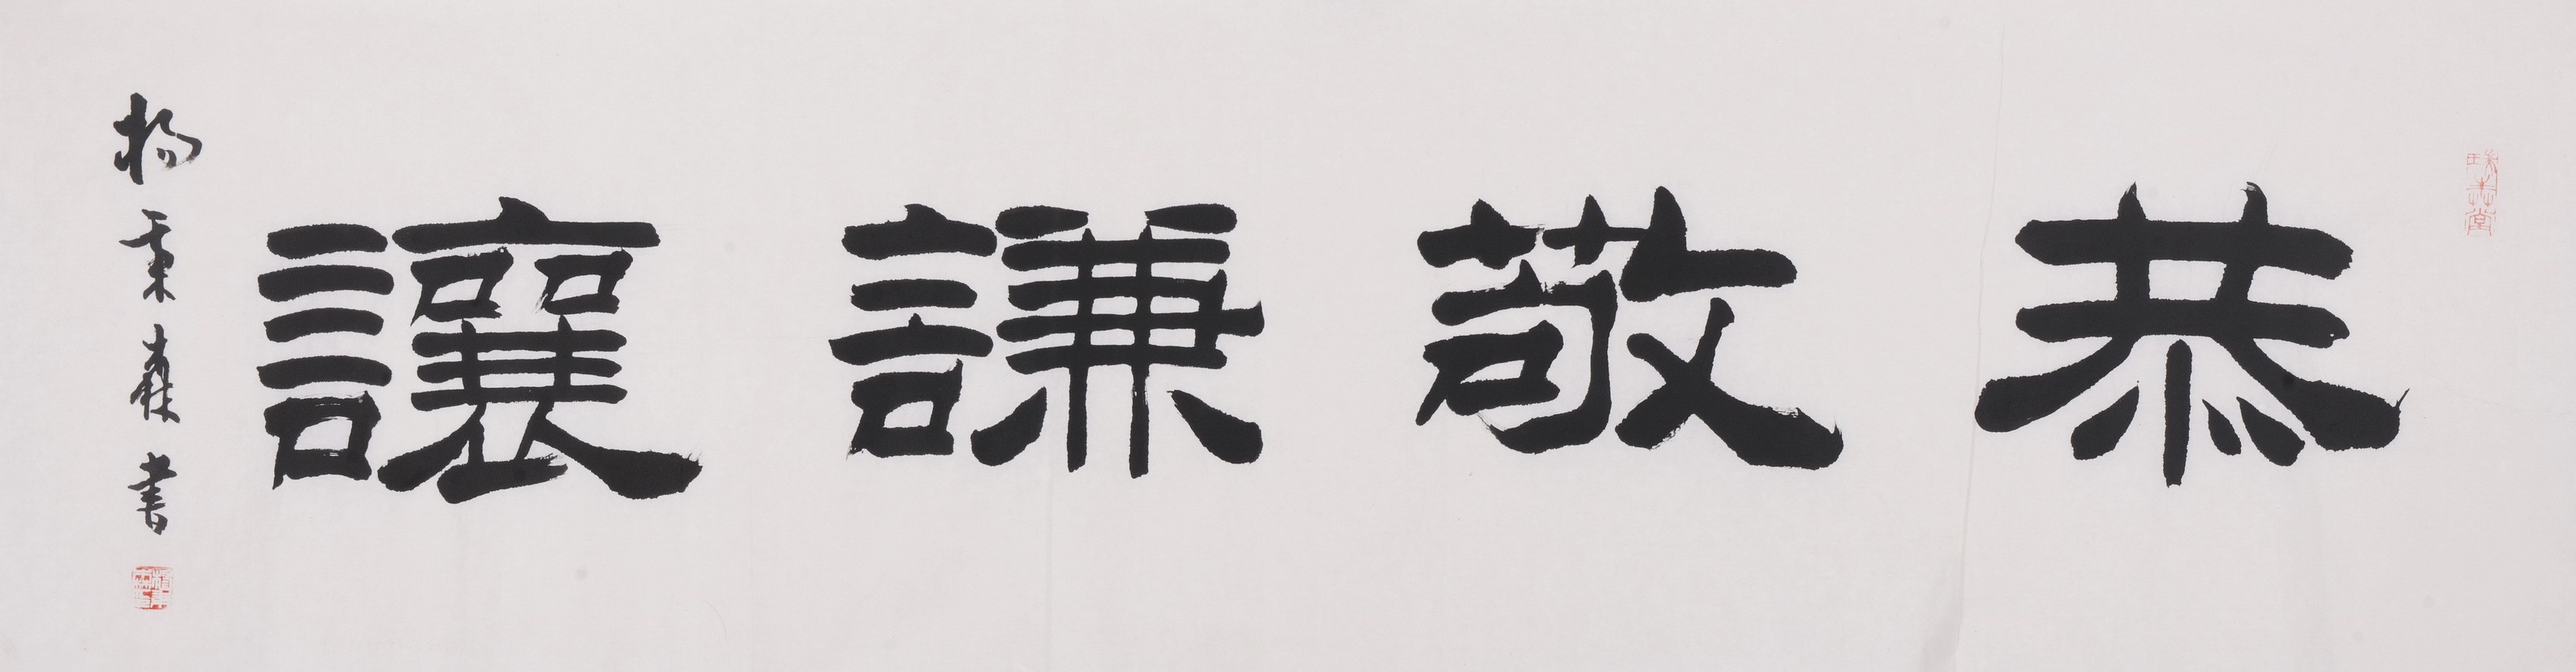 恭敬謙讓
楊秉森書